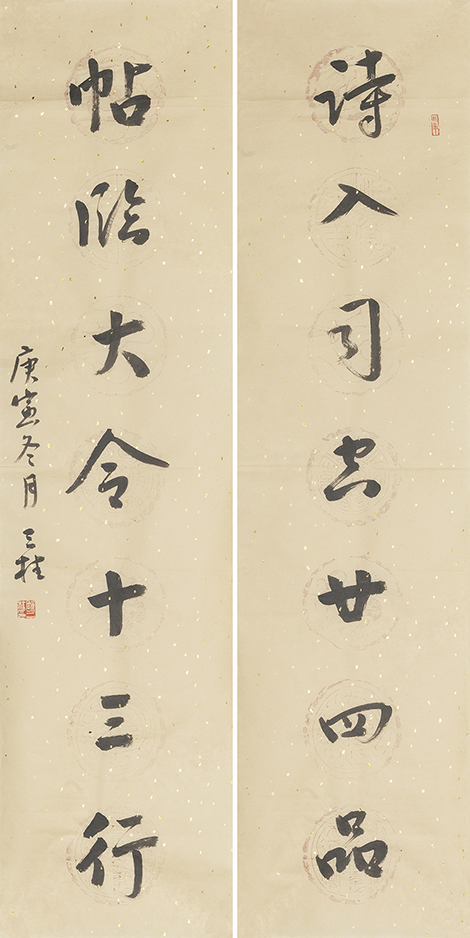 诗入司空廿四品
帖临大令十三行
庚寅冬月